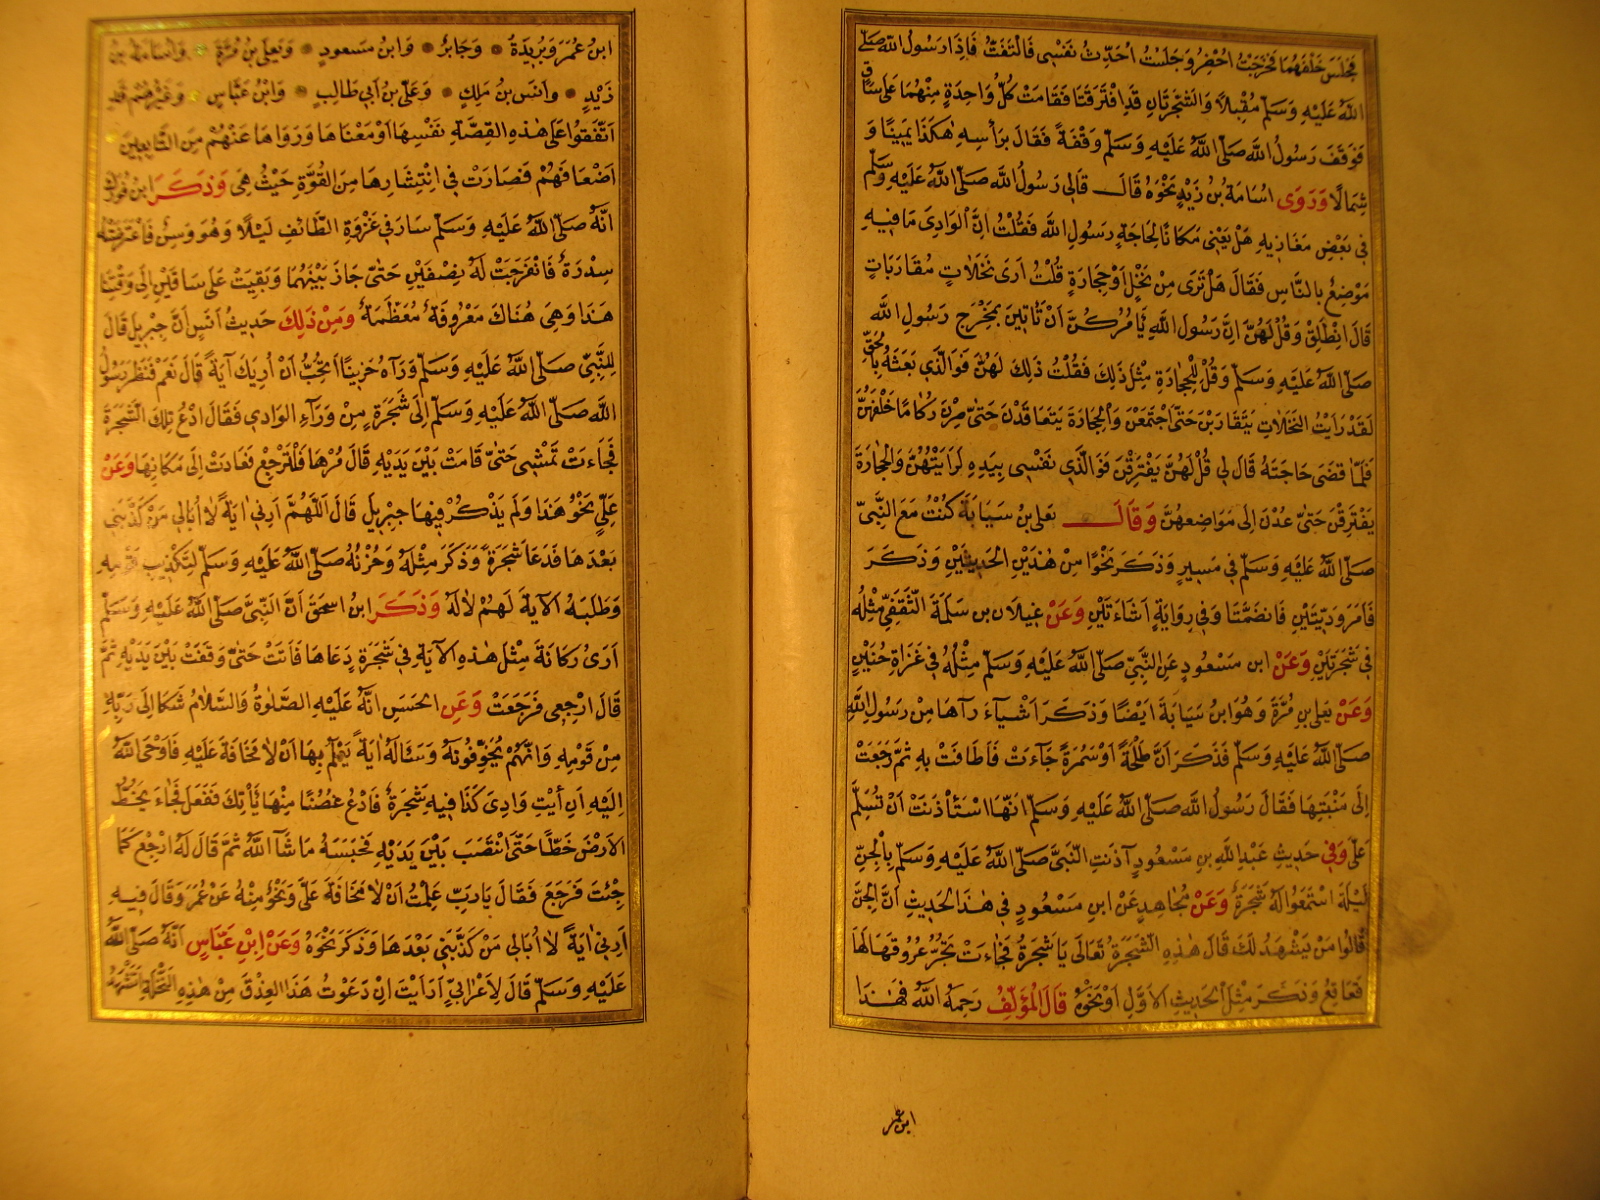 فجلس خلفهما فخرجت احضر وجلست احدث نفسى فالتفت فاذا رسول الله صلى
الله عليه وسلم مقبلا والشجرتان قد افترقتا فقامت كل واحدة منهما على ساق
فوقف رسول الله صلى الله عليه وسلم وقفة فقال برأسه هكذا يمينا و
شمالا وروى اسامة بن زيد نحوه قال قال لى رسول الله صلى الله عليه وسلم
فى بعض مغازيه هل يعنى مكانا لحاجة رسول الله فقلت ان الوادى ما فيه
موضع بالناس فقال هل ترى من نخل او حجارة قلت ارى نخلات مقاربات
قال انطلق وقل لهن ان رسول الله يأمركن ان تأتين بمخرج رسول الله
صلى الله عليه وسلم وقل للحجارة مثل ذلك فقلت ذلك لهن فوالذى بعثه بالحق
لقد رأيت النخلات يتقاربن حتى اجتمعن والحجارة يتعاقدن حتى صرن ركاما خلفهن
فلما قضى حاجته قال لى قل لهن يفترقن فوالذى نفسى بيده لرأيتهن والحجارة
يفترقن حتى عدن الى مواضعهن وقال يعلى بن سيابة كنت مع النبى
صلى الله عليه وسلم فى مسير وذكر نحوا من هذين الحديثين وذكر
فامر وديتين فانضمتا وفى رواية اشاءتين وعن غيلان بن سلمة الثقفى مثله
فى شجرتين وعن ابن مسعود عن النبى صلى الله عليه وسلم مثله فى غزاة حنين
وعن يعلى بن مرة وهو ابن سيابة ايضا وذكر اشياء رآها من رسول الله
صلى الله عليه وسلم فذكر ان طلحة او سمرة جاءت فاطافت به ثم رجعت
الى منبتها فقال رسول الله صلى الله عليه وسلم انها استأذنت ان تسلم
على وفى حديث عبد الله بن مسعود آذنت النبى صلى الله عليه وسلم بالجن
ليلة استمعوا له شجرة وعن مجاهد عن ابن مسعود فى هذا الحديث ان الجن
قالوا من يشهد لك قال هذه الشجرة تعالى يا شجرة فجاءت تجر عروقها لها
قعاقع وذكر مثل الحديث الاول او نحوه قال المؤلف رحمه الله فهذا
ابن عمر
ابن عمر وبريدة وجابر وابن مسعود ويعلى بن مرة واسامة بن
زيد وانس بن ملك وعلى بن ابى طالب وابن عباس وغيرهم قد
اتفقوا على هذه القصة نفسها او معناها ورواها عنهم من التابعين
اضعافهم فصارت فى انتشارها من القوة حيث هى وذكر ابن فورك
انه صلى الله عليه وسلم سار فى غزوة الطائف ليلا وهو وسن فاعترضته
سدرة فانفرجت له نصفين حتى جاز بينهما وبقيت على ساقين الى وقتنا
هذا وهى هناك معروفة معظمة ومن ذلك حديث انس ان جبريل قال
للنبى صلى الله عليه وسلم ورآه حزينا اتحب ان اريك آية قال نعم فنظر رسول
الله صلى الله عليه وسلم الى شجرة من ورآء الوادى فقال ادع تلك الشجرة
فجاءت تمشى حتى قامت بين يديه قال مرها فلترجع فعادت الى مكانها وعن
على نحو هذا ولم يذكر فيها جبريل قال اللهم ارنى اية لا ابالى من كذبنى
بعدها فدعا شجرة وذكر مثله وحزنه صلى الله عليه وسلم لتكذيب قومه
وطلبه الآية لهم لا له وذكر ابن اسحق ان النبى صلى الله عليه وسلم
ارى ركانة مثل هذه الآية فى شجرة دعاها فأتت حتى وقفت بين يديه ثم
قال ارجعى فرجعت وعن الحسن انه عليه الصلوة والسلام شكا الى ربه
من قومه وانهم يخوفونه وسئاله اية يعلم بها ان لا مخافة عليه فاوحى الله
اليه ان أيت وادى كذا فيه شجرة فادع غصنا منها يأتك ففعل فجاء يخط
الارض خطا حتى انتصب بين يديه فحبسه ما شآ الله ثم قال له ارجع كما
جئت فرجع فقال يا رب علمت ان لا مخافة على ونحو منه عن عمر وقال فيه
ارنى اية لا ابالى من كذبنى بعدها وذكر نحوه وعن ابن عباس انه صلى الله
عليه وسلم قال لاعرابى ارأيت ان دعوت هذا العذق من هذه النخلة اتشهد